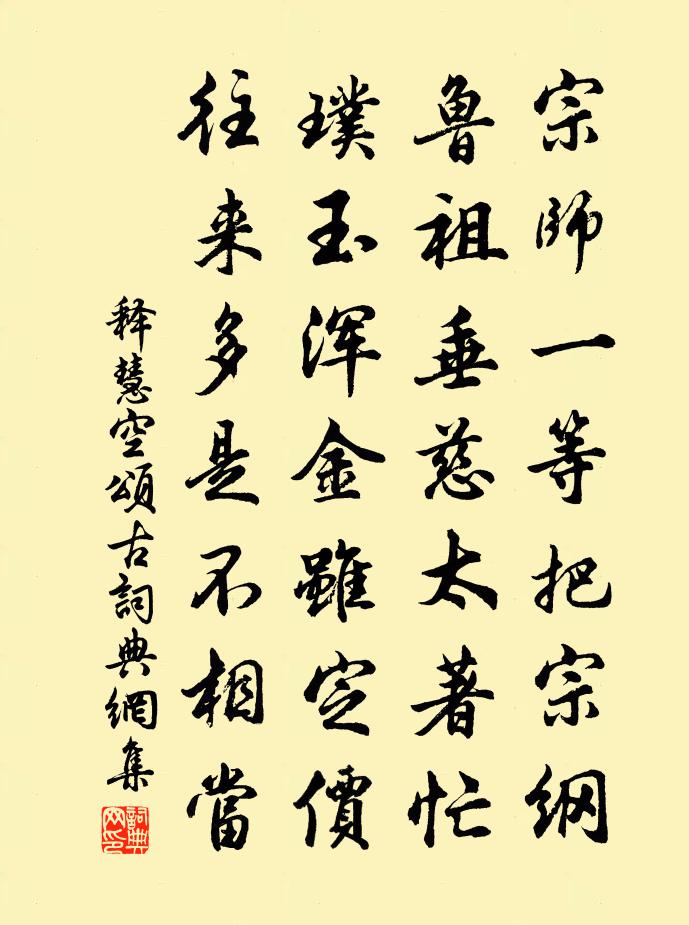 宗师一等把宗纲
鲁祖垂慈太著忙
璞玉浑金雖定價
往来多是不相當
释慧空頌古詞典網集
詞典网印